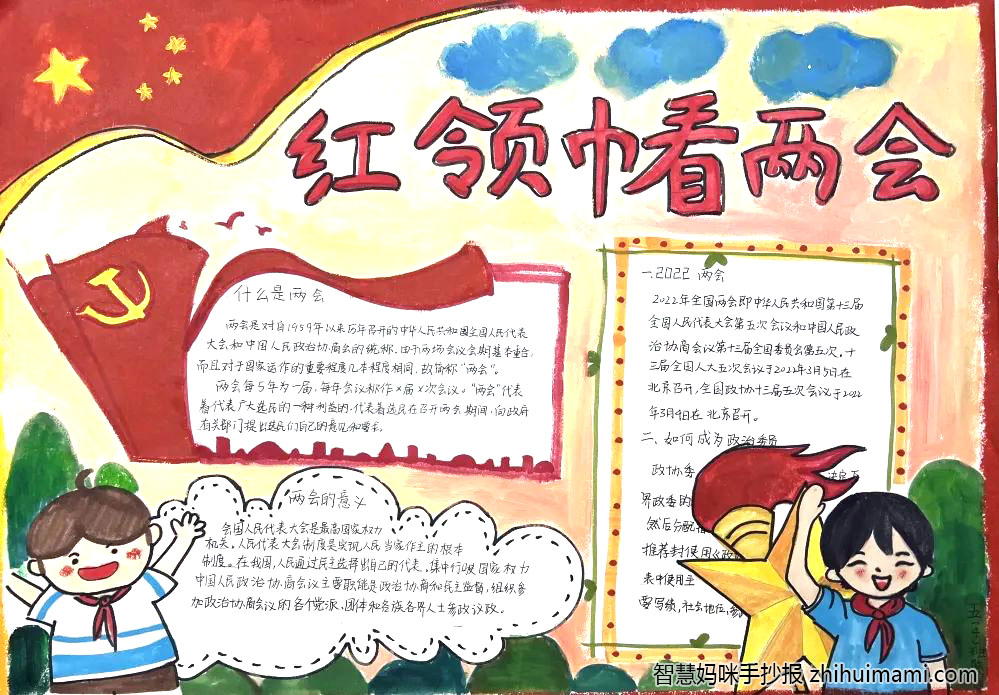 红领巾看两会
什么是两会
两会是对自1959年以来历年召开的中华人民共和国全国人民代表
大会和中国人民政治协商会的统称。由于两场会议会期基本重合,
而且对于国家运作的重要程度几本程度相同,故简称"两会"。
两会每5年为一届,每年会议称作×届×次会议。"两会"代表
着代表广大选民的一种利益的,代表着选民在召开两会期间,向政府
有关部门提出选民们自己的意见和要求。
两会的意义
全国人民代表大会是最高国家权力
机关。人民代表大会制度是实现人民当家作主的根本
制度。在我国,人民通过民主选择出自己的代表,集中行使国家权力
中国人民政治协商会议主要职能是政治协商和民主监督,组织参
加政治协商会议的各个党派、团体和各族各界人士参政议政。
一、2022 两会
2022年全国两会即中华人民共和国第十三届
全国人民代表大会第五次会议和中国人民政
治协商会议第十三届全国委员会第五次。十
三届全国人大五次会议于2022年3月5日在
北京召开,全国政协十三届五次会议于2022
年3月4日在北京召开。
二、如何成为政治委员
政协委
界政委的
然后分配
推荐封使用《政
表中使用主
要写绩,社会地位,参
智慧妈咪手抄报 zhihuimami.com